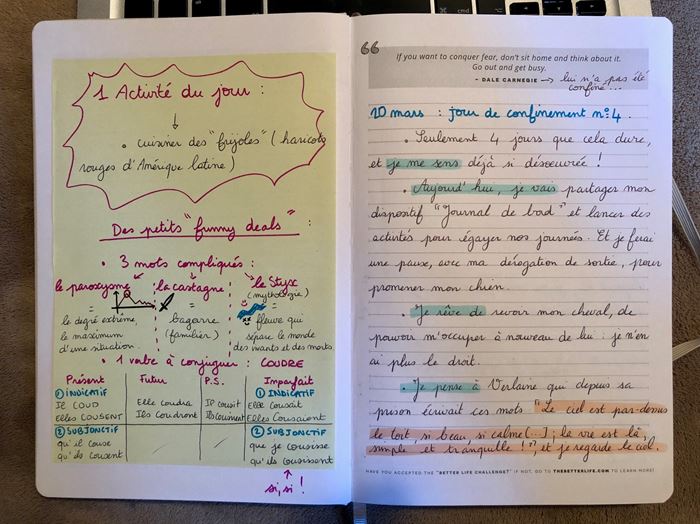 1 Activité du jour :
• cuisiner des "frijoles" (haricots
rouges d'Amérique latine)
Des petits "funny deals" :
• 3 mots compliqués :
le paroxysme
=
le degré extrême,
le maximum
d'une situation.
la castagne
=
bagarre
(familier)
le Styx
(mythologie)
=
fleuve qui
sépare le monde
des vivants et des morts.
• 1 verbe à conjuguer : COUDRE
Présent Futur P.S. Imparfait
① INDICATIF
Il COUD
Elles COUSENT
Elle coudra
Ils coudront
IP cousit
Ils cousirent
① INDICATIF
Elle cousait
Elles Cousaient
② SUBJONCTIF
qu'il couse
qu'ils cousent
② SUBJONCTIF
que je cousisse
qu'ils cousissent
si, si !
If you want to conquer fear, don't sit home and think about it.
Go out and get busy.
- DALE CARNEGIE → lui n'a pas été
confiné...
20 mars : jour de confinement n°4.
• Seulement 4 jours que cela dure,
et je me sens déjà si désoeuvrée !
• Aujourd'hui, je vais partager mon
dispositif "Journal de bord" et lancer des
activités pour égayer nos journées. Et je ferai
une pause, avec ma dérogation de sortie, pour
promener mon chien.
• Je rêve de revoir mon cheval, de
pouvoir m'occuper à nouveau de lui : je n'en
ai plus le droit.
• Je pense à Verlaine qui depuis sa
prison écrivait ces mots "Le ciel est par-dessus
le toit, si beau, si calme (...), la vie est là
simple et tranquille !", et je regarde le ciel.
HAVE YOU ACCEPTED THE "BETTER LIFE CHALLENGE?" IF NOT, GO TO THEBETTERLIFE.COM TO LEARN MORE!